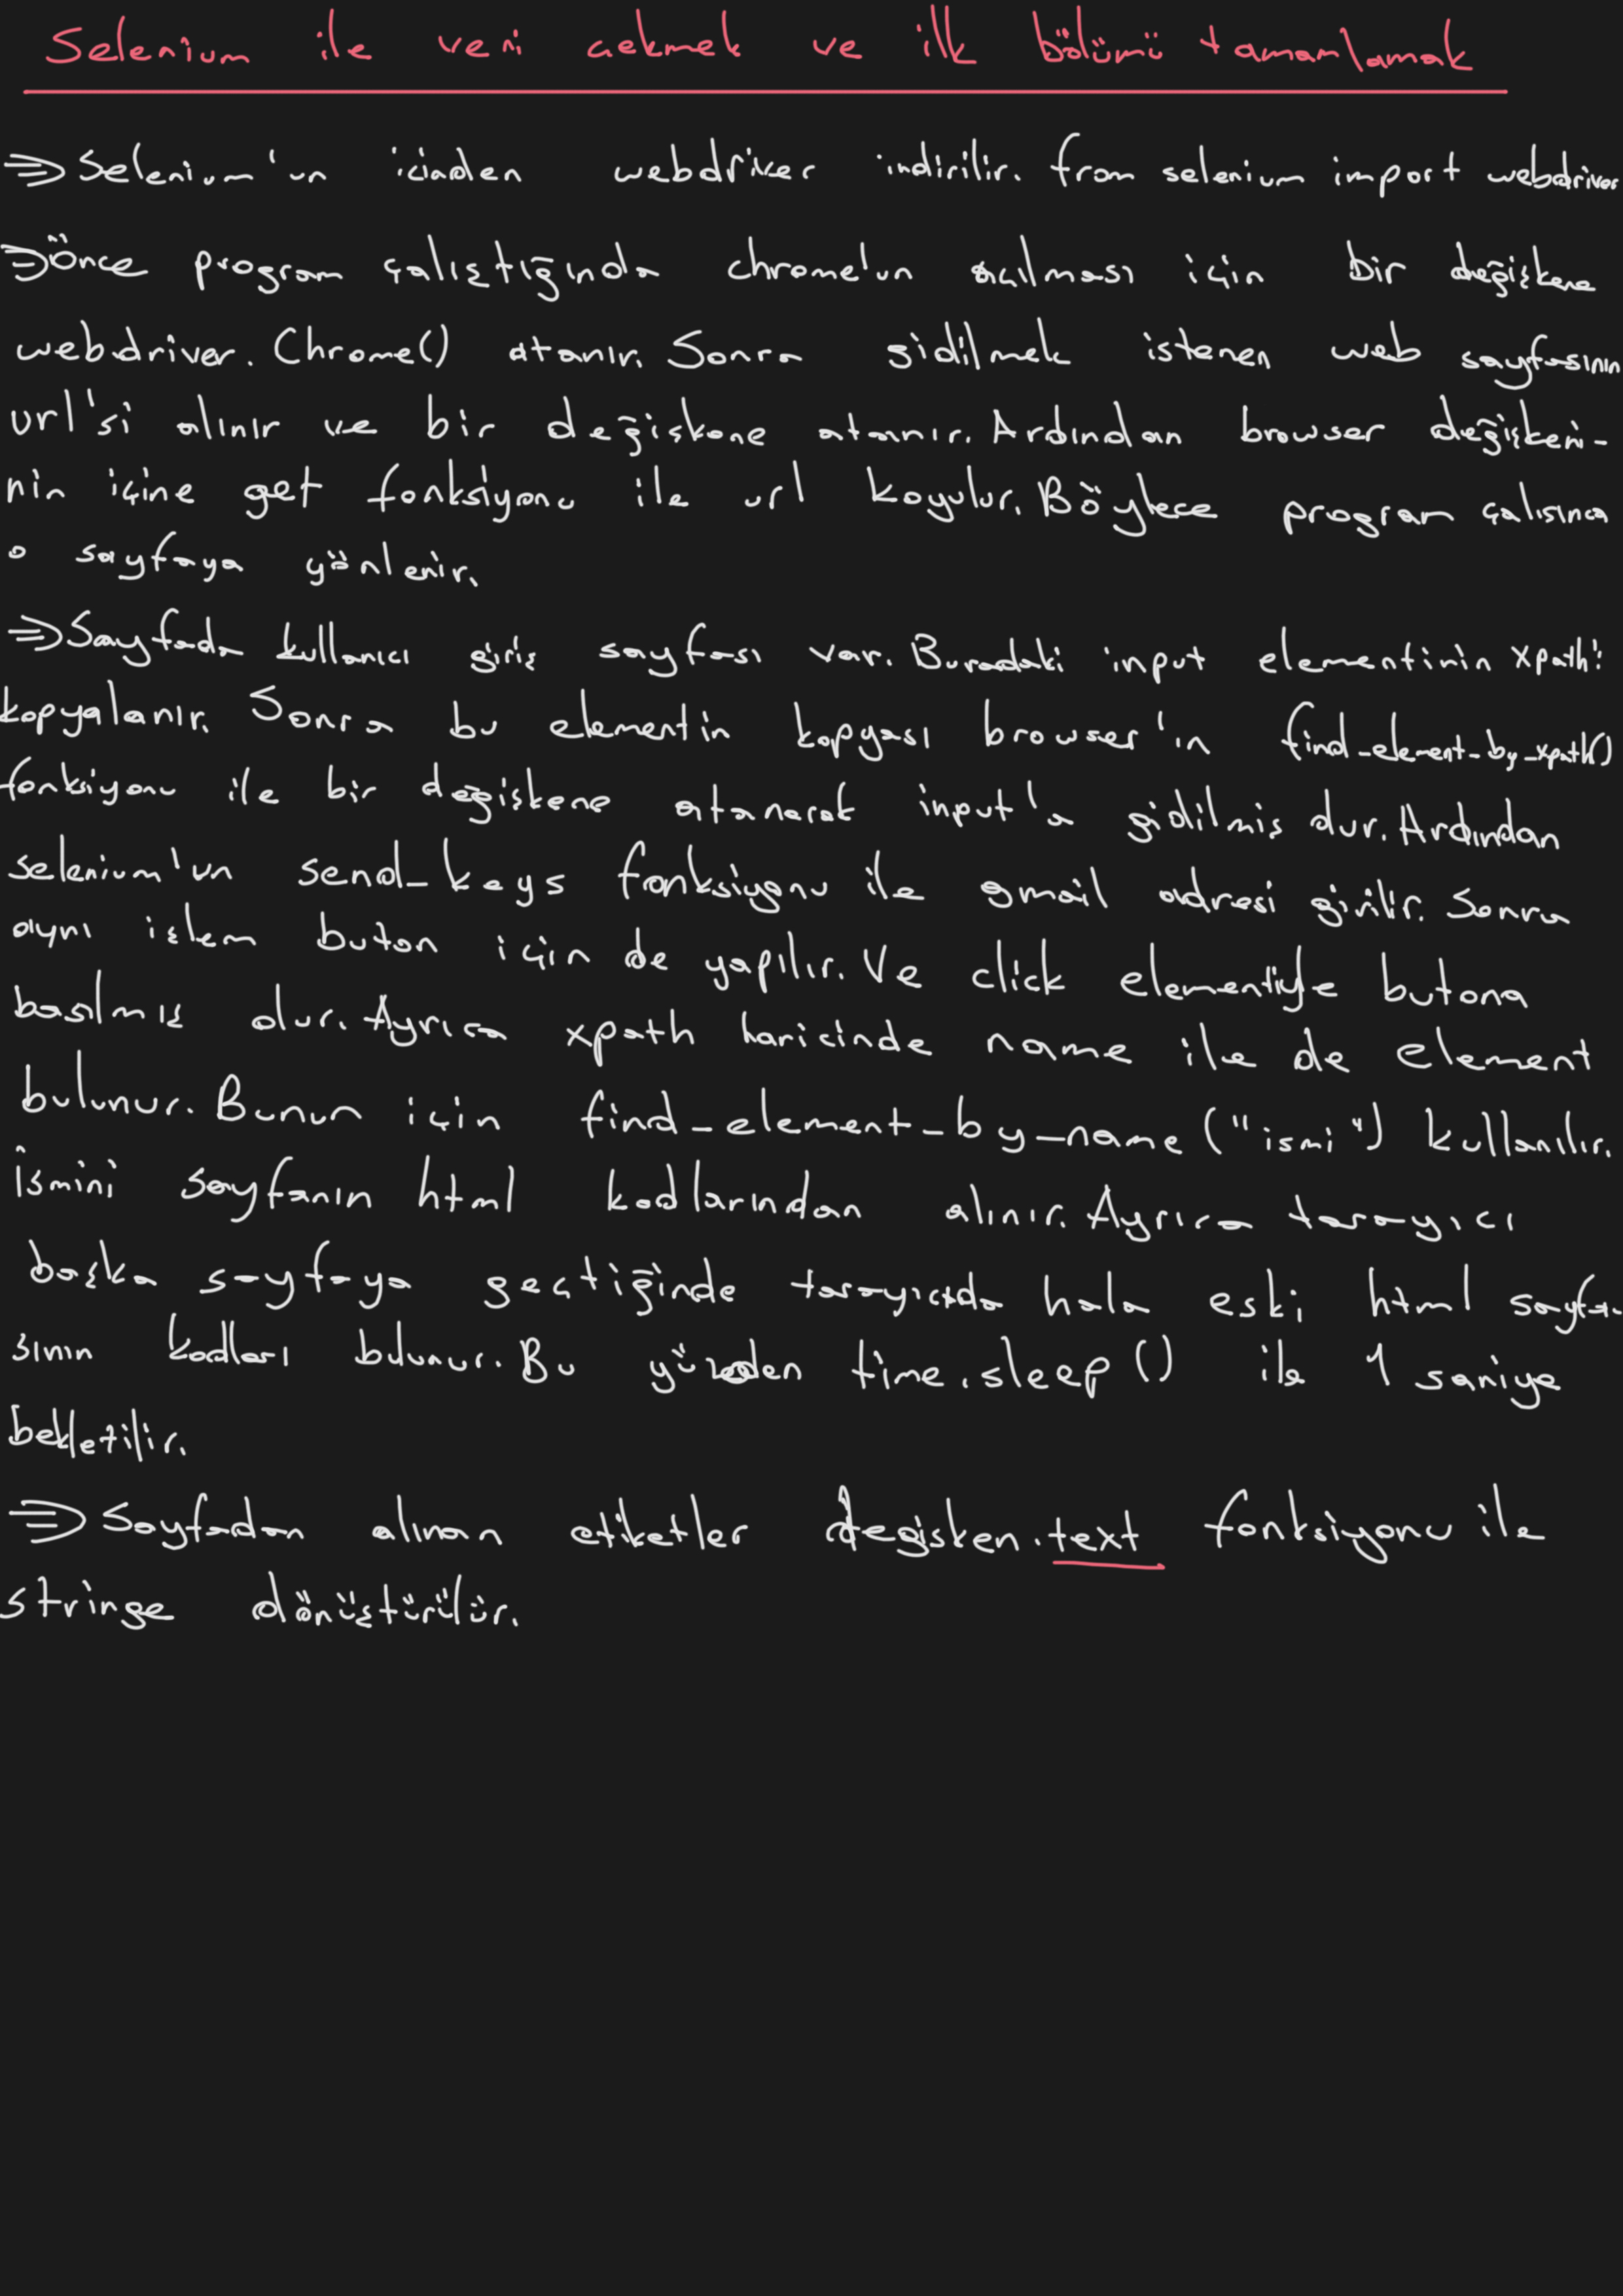 Selenium ile veri çekmek ve ilk bölümü tamamlamak
⇒ Selenium'un içinden webdriver indirilir. from selenium import webdriver
⇒ Önce program çalıştığında chrome'un açılması için bir değişkene
webdriver.Chrome() atanır. Sonra gidilmek istenen web sayfasının
url'si alınır ve bir değişkene atanır. Ardından browser değişkeni-
nin içine get fonksiyonu ile url koyulur. Böylece program çalışınca
o sayfaya yönlenir.
⇒ Sayfada kullanıcı giriş sayfası var. Buradaki input elementinin xpath'i
kopyalanır. Sonra bu elementin kopyası browser'ın find_element_by_xpath()
fonksiyonu ile bir değişkene atanarak input'a gidilmiş olur. Ardından
selenium'un send_keys fonksiyonu ile gmail adresi girilir. Sonra
aynı işlem buton için de yapılır. Ve click elementiyle butona
basılmış olur. Ayrıca xpath haricinde name ile de element
bulunur. Bunun için find_element_by_name("ismi") kullanılır.
İsmi sayfanın html kodlarından alınır. Ayrıca tarayıcı
başka sayfaya geçtiğinde tarayıcıda hala eski html sayfa-
sının kodları bulunur. Bu yüzden time.sleep() ile 1 saniye
bekletilir.
⇒ Sayfadan alınan etiketler değişken.text fonksiyonu ile
stringe dönüştürülür.